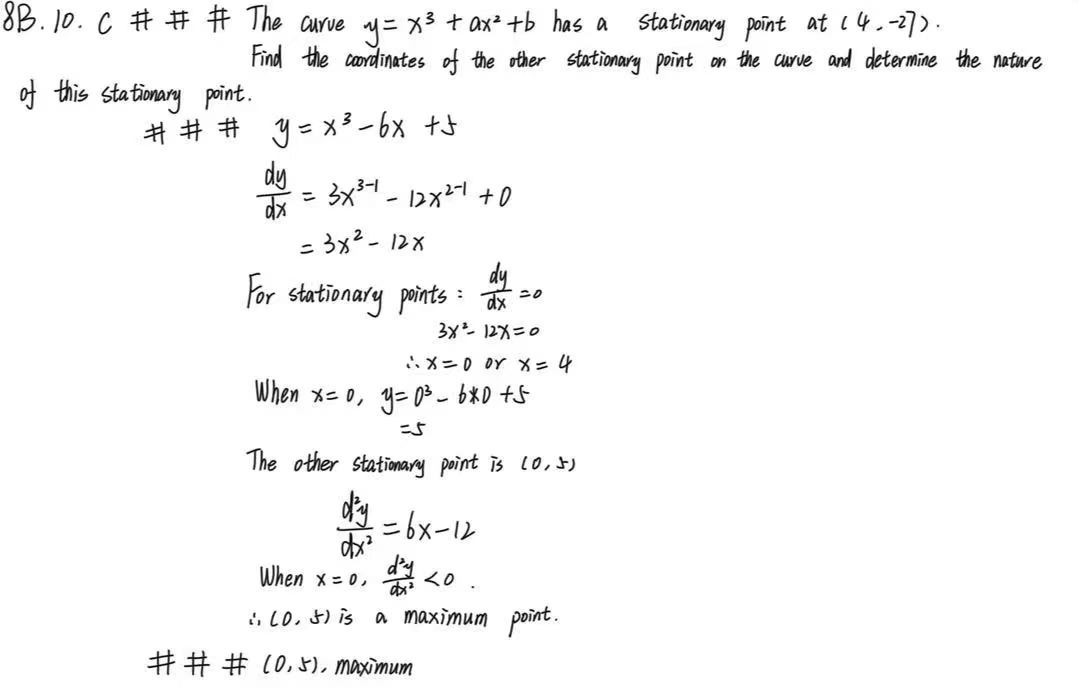 8B. 10. C # # # The curve y = x³ + ax² + b has a stationary point at (4, -27).
Find the coordinates of the other stationary point on the curve and determine the nature
of this stationary point.
# # # y = x³ - 6x + 5
dy/dx = 3x³⁻¹ - 12x²⁻¹ + 0
= 3x² - 12x
For stationary points : dy/dx = 0
3x² - 12x = 0
∴ x = 0 or x = 4
When x = 0, y = 0³ - 6*0 + 5
= 5
The other stationary point is (0, 5)
d²y/dx² = 6x - 12
When x = 0, d²y/dx² < 0 .
∴ (0, 5) is a maximum point.
# # # (0, 5), maximum